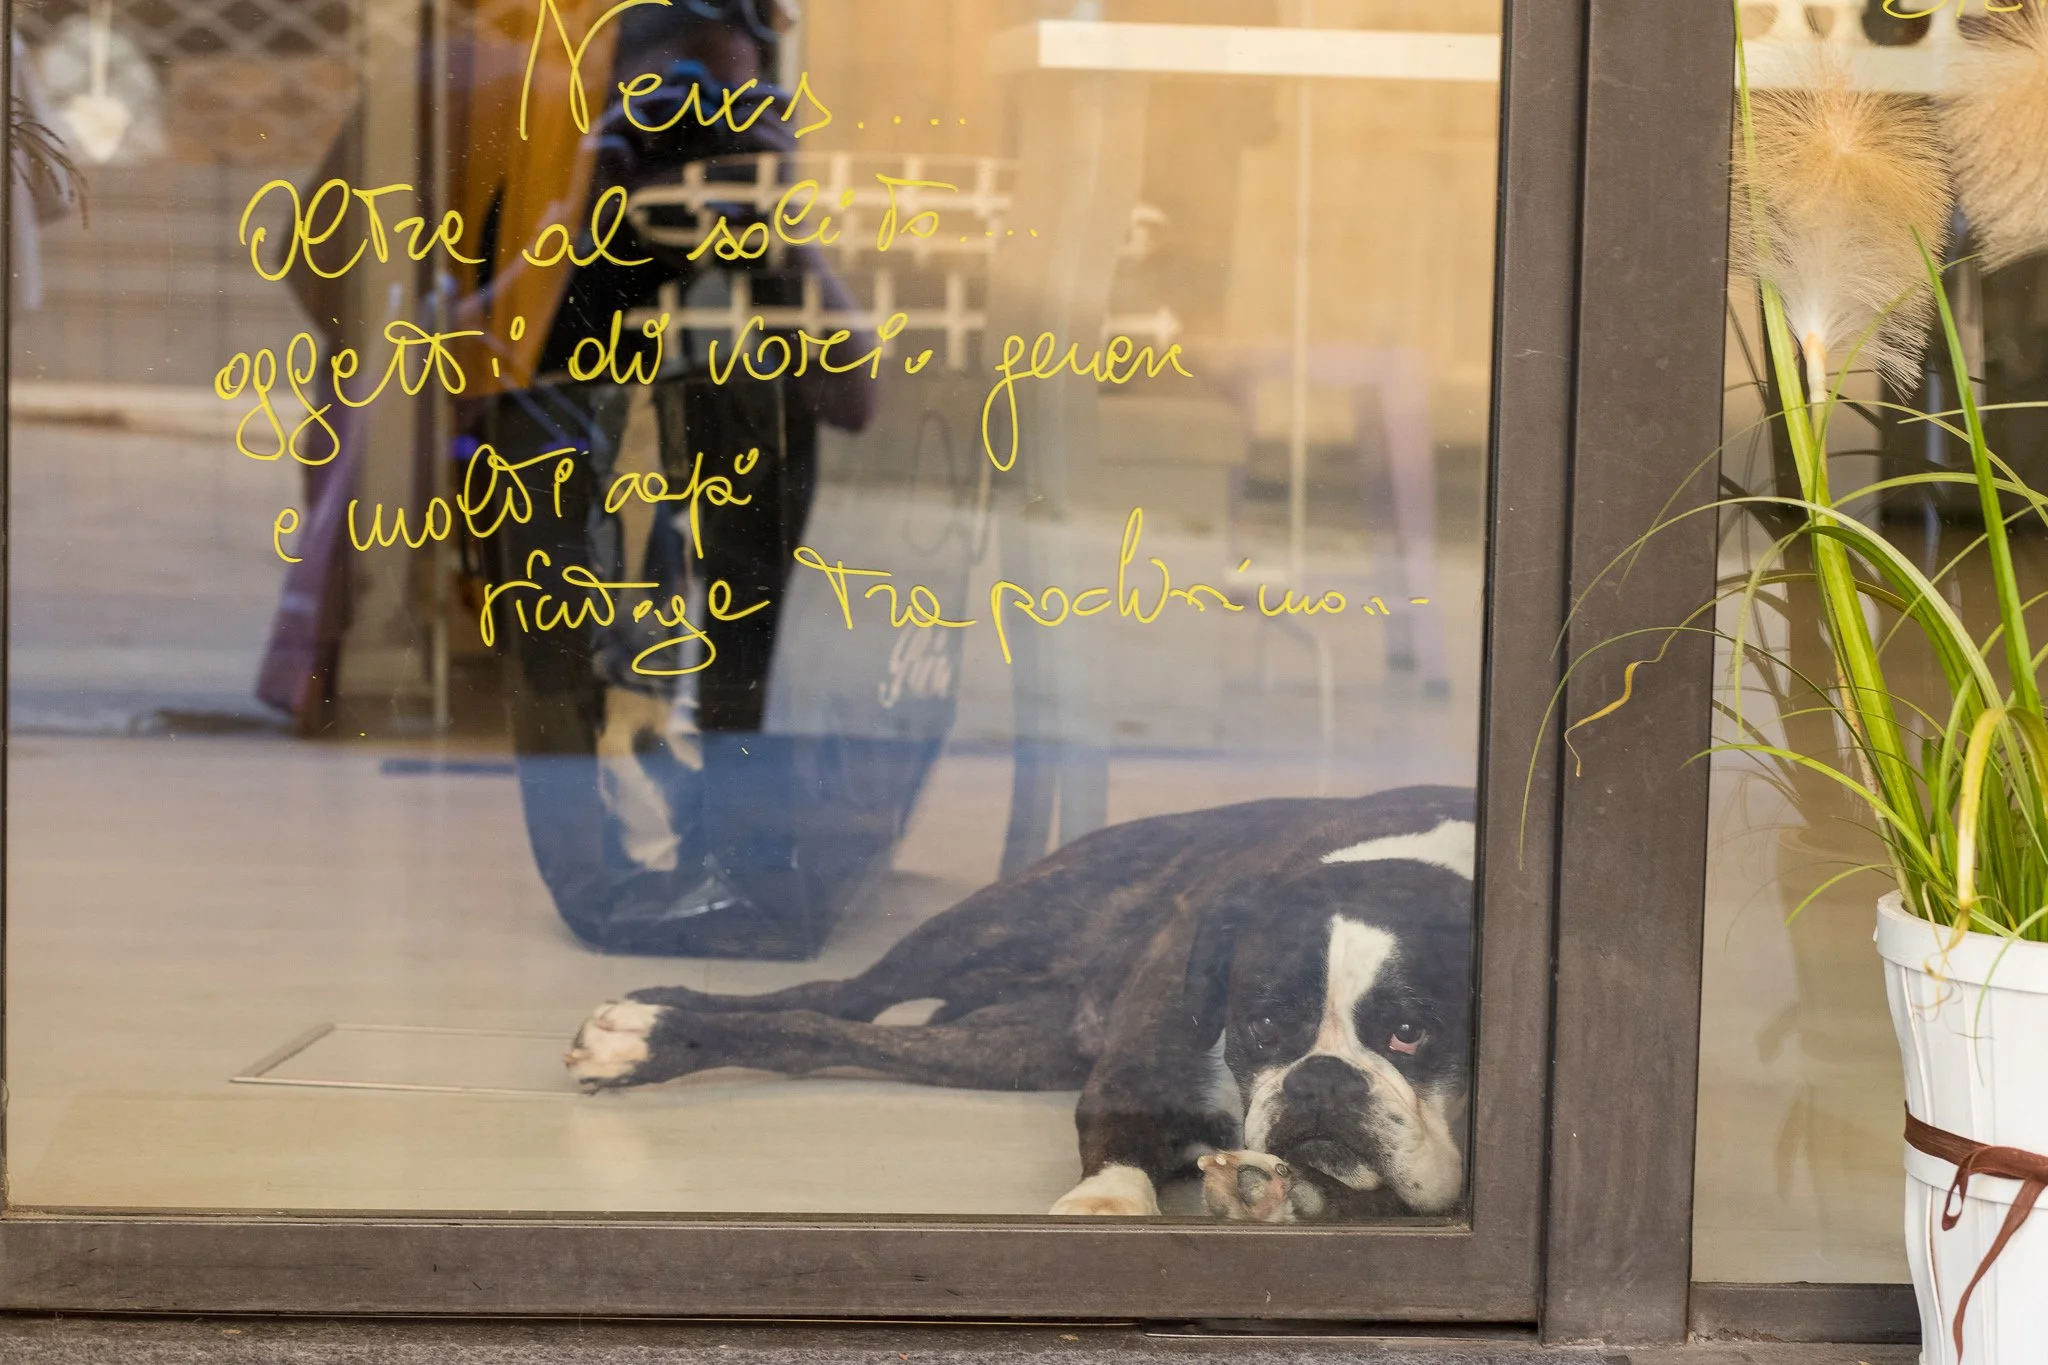 News.....
Oltre al solito....
oggetti di vario genere
e molti capi
vintage tra pochissimo...